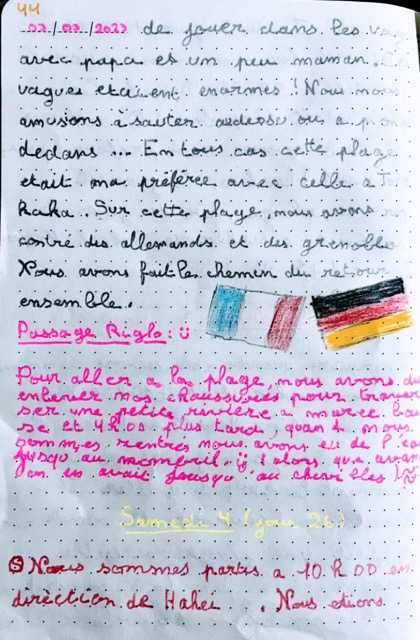 44
03/03/2023 de jouer dans les vag
avec papa et un peu maman. Ce
vagues etaient enormes! Nous nous
amusions à sauter audessu ou a p
dedans ... En tous cas cette plage
etait ma préférée avec celle a T
kaka. Sur cette plage, nous avons
contré des allemands et des grenoble
Nous avons fait le chemin du retour
ensemble.
Passage Riglo: :)
Pour aller a la plage, nous avons du
enlever nos chaussures pour traver
ser une petite rivière a marée bas
se et 4h00 plus tard, quand nous
sommes rentrés nous avons eu de l'ea
jusqu'au nombril :) ! alors qu'a avan
l'on en avait jusqu'au chevilles !
Samedi 4 (jour 26)
S Nous sommes partis a 10h00 en
direction de Hahei. Nous etions